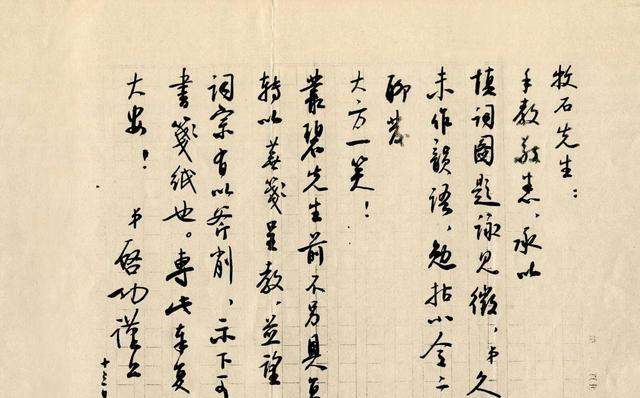 牧石先生：
手教敬悉，承以
填词图题咏见徵，弟久
未作韻语，勉拈小令二
聊發
大方一笑！
叢碧先生前不另具
转以芜笺呈教，並望
词宗有以斧削，示下可
書笺纸也。專此奉复
大安！
弟启功谨上
十三日